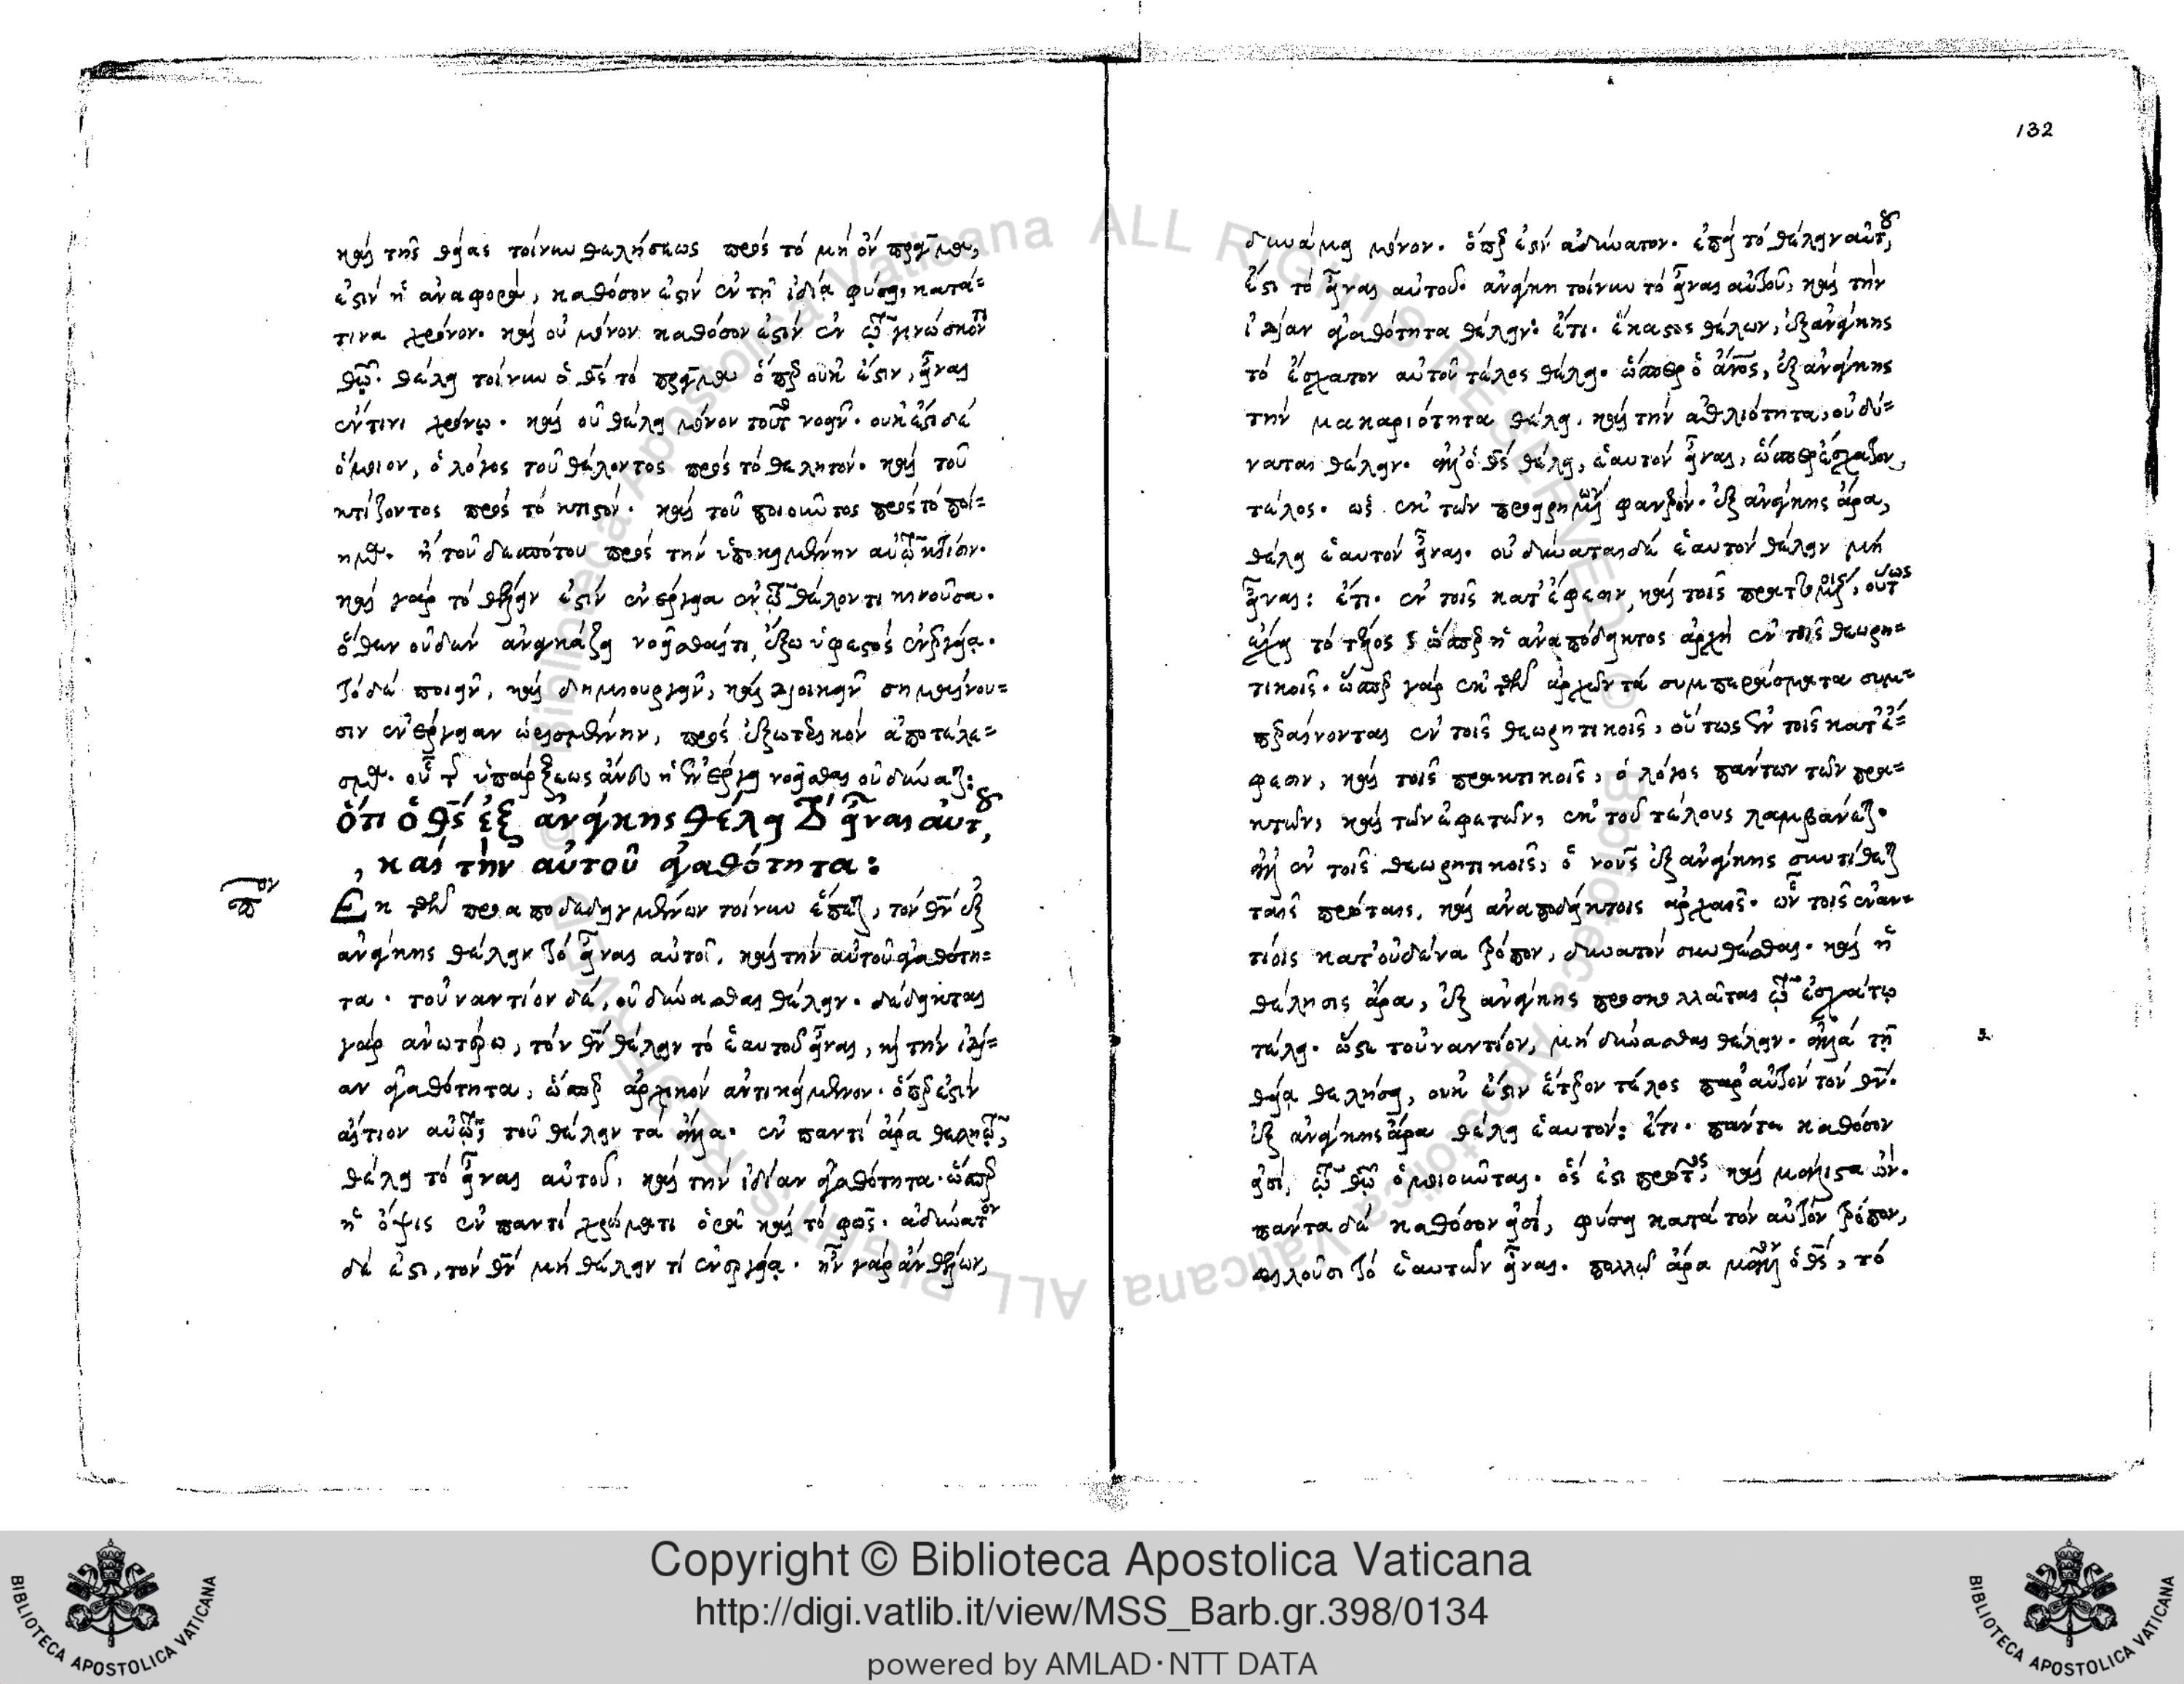 καὶ τῆς θείας τοίνυν θελήσεως πρὸς τὸ μὴ ὂν πρᾶγμα,
ἐστὶν ἡ ἀναφορά, καθόσον ἐστὶν ἐν τῇ ἰδίᾳ φύσει, κατά=
τινα χρόνον. καὶ οὐ μόνον καθόσον ἐστὶν ἐν τῷ γινώσκοντι
θεῷ. θέλει τοίνυν ὁ θς τὸ πρᾶγμα ὅπερ οὐκ ἔστιν, εἶναι
ἔν τινι χρόνῳ. καὶ οὐ θέλει μόνον τοῦτο νοεῖν. οὐκ ἔστι δέ
ὅμοιον, ὁ λόγος τοῦ θέλοντος πρὸς τὸ θελητόν. καὶ τοῦ
κτίζοντος πρὸς τὸ κτιστόν. καὶ τοῦ ποιοῦντος πρὸς τὸ ποί=
ημα. ἢ τοῦ δεσπότου πρὸς τὴν ὑποκειμένην αὐτῷ κτίσιν.
καὶ γὰρ τὸ θέλειν ἐστὶν ἐνέργεια ἐν τῷ θέλοντι μένουσα.
ὅθεν οὐδὲν ἀναγκάζει νοεῖσθαί τι ἔξω ὑφεστὸς ἐνεργείᾳ.
τὸ δὲ ποιεῖν, καὶ δημιουργεῖν, καὶ διοικεῖν σημαίνου=
σιν ἐνέργειαν ὡρισμένην, πρὸς ἐξωτερικὸν ἀποτέλε=
σμα. οὗ τῆς ὑπάρξεως ἄνευ ἡ ἐνέργεια νοεῖσθαι οὐ δύναται:
ὅτι ὁ θς ἐξ ἀνάγκης θέλει τὸ εἶναι αὐτοῦ,
καὶ τὴν αὐτοῦ ἀγαθότητα:
Ἐκ τῶν προαποδεδειγμένων τοίνυν ἕπεται, τὸν θν ἐξ
ἀνάγκης θέλειν τὸ εἶναι αὐτοῦ, καὶ τὴν αὐτοῦ ἀγαθότη=
τα. τοὐναντίον δέ, οὐ δύνασθαι θέλειν. δέδεικται
γὰρ ἀνωτέρω, τὸν θν θέλειν τὸ ἑαυτοῦ εἶναι, καὶ τὴν ἰδί=
αν ἀγαθότητα, ὥσπερ ἀρχικὸν ἀντικείμενον. ὅπερ ἐστὶν
αἴτιον αὐτῷ τοῦ θέλειν τὰ ἄλλα. ἐν παντὶ ἄρα θελητῷ,
θέλει τὸ εἶναι αὐτοῦ, καὶ τὴν ἰδίαν ἀγαθότητα. ὥσπερ
ἡ ὄψις ἐν παντὶ χρώματι ὁρᾷ καὶ τὸ φῶς. ἀδύνατον
δέ ἐστι, τὸν θν μὴ θέλειν τι ἐνεργείᾳ. ἦν γὰρ ἂν θέλων,
132
δυνάμει μόνον. ὅπερ ἐστὶν ἀδύνατον. ἐπεὶ τὸ θέλειν αὐτοῦ,
ἔστι τὸ εἶναι αὐτοῦ. ἀνάγκη τοίνυν τὸ εἶναι αὐτοῦ, καὶ τὴν
ἰδίαν ἀγαθότητα θέλειν: ἔτι. ἕκαστος θέλων, ἐξ ἀνάγκης
τὸ ἔσχατον αὐτοῦ τέλος θέλει. ὥσπερ ὁ ἄνος, ἐξ ἀνάγκης
τὴν μακαριότητα θέλει. καὶ τὴν ἀθλιότητα, οὐ δύ=
ναται θέλειν. ἀλλ' ὁ θς θέλει, ἑαυτὸν εἶναι, ὥσπερ ἔσχατον,
τέλος. ὡς ἐκ τῶν προειρημένων φανερόν. ἐξ ἀνάγκης ἄρα,
θέλει ἑαυτὸν εἶναι. οὐ δύναται δὲ ἑαυτὸν θέλειν μὴ
εἶναι: ἔτι. ἐν τοῖς κατ' ἔφεσιν, καὶ τοῖς πρακτικοῖς, οὕτως
ἔχει τὸ τέλος ὥσπερ ἡ ἀναπόδεικτος ἀρχὴ ἐν τοῖς θεωρη=
τικοῖς. ὥσπερ γὰρ ἐκ τῶν ἀρχῶν τὰ συμπεράσματα συμ=
περαίνονται ἐν τοῖς θεωρητικοῖς, οὕτως ἐν τοῖς κατ' ἔ=
φεσιν, καὶ τοῖς πρακτικοῖς, ὁ λόγος πάντων τῶν πρα=
κτῶν, καὶ τῶν ἐφετῶν, ἐκ τοῦ τέλους λαμβάνεται.
ἀλλ' ἐν τοῖς θεωρητικοῖς, ὁ νοῦς ἐξ ἀνάγκης συντίθεται
ταῖς πρώταις, καὶ ἀναποδείκτοις ἀρχαῖς. ὧν τοῖς ἐναν=
τίοις κατ' οὐδένα τρόπον, δυνατὸν συνθέσθαι. καὶ ἡ
θέλησις ἄρα, ἐξ ἀνάγκης προσκολλᾶται τῷ ἐσχάτῳ
τέλει. ὥστε τοὐναντίον, μὴ δύνασθαι θέλειν. ἀλλὰ τῇ
θείᾳ θελήσει, οὐκ ἔστιν ἕτερον τέλος παρ' αὐτὸν τὸν θν.
ἐξ ἀνάγκης ἄρα θέλει ἑαυτόν: ἔτι. πάντα καθόσον
εἰσί, τῷ θεῷ ὁμοιοῦται. ὅς ἐστι πρώτως καὶ μάλιστα ὤν.
πάντα δὲ καθόσον εἰσί, φύσει κατὰ τὸν αὐτῶν τρόπον,
φιλοῦσι τὸ ἑαυτῶν εἶναι. πολλῷ ἄρα μᾶλλον ὁ θς, τὸ
Copyright © Biblioteca Apostolica Vaticana
http://digi.vatlib.it/view/MSS_Barb.gr.398/0134
powered by AMLAD·NTT DATA
BIBLIOTECA APOSTOLICA VATICANA
BIBLIOTECA APOSTOLICA VATICANA
© Biblioteca Apostolica Vaticana ALL RIGHTS RESERVED
© Biblioteca Apostolica Vaticana ALL RIGHTS RESERVED